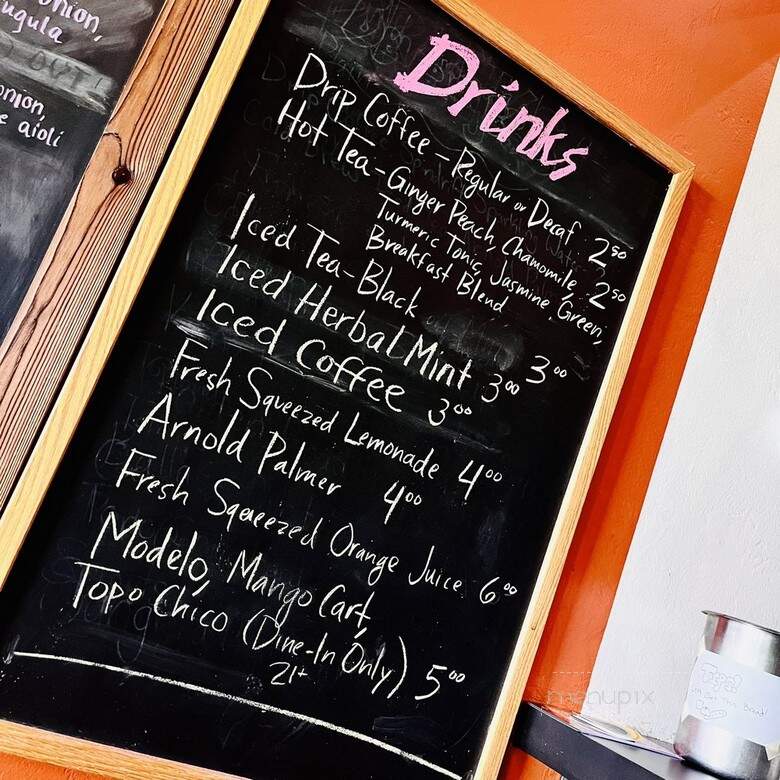 onion,
ugula
OUT!
onion,
e aioli
Drinks
Drip Coffee - Regular or Decaf 2⁵⁰
Hot Tea - Ginger Peach, Chamomile 2⁵⁰
Turmeric Tonic, Jasmine, Green,
Breakfast Blend
Iced Tea - Black 3⁰⁰
Iced Herbal Mint 3⁰⁰
Iced Coffee 3⁰⁰
Fresh Squeezed Lemonade 4⁰⁰
Arnold Palmer 4⁰⁰
Fresh Sqeeezed Orange Juice 6⁰⁰
Modelo, Mango Cart,
Topo Chico (Dine-In Only) 5⁰⁰
21+
Tips!
menupix